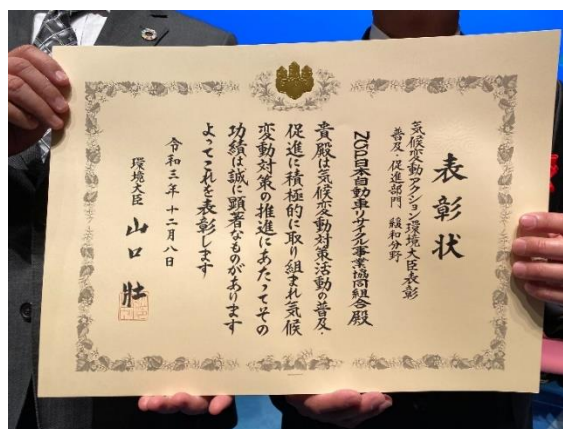 表彰状
気候変動アクション環境大臣表彰
普及・促進部門 緩和分野
NGP日本自動車リサイクル事業協同組合殿
貴殿は気候変動対策活動の普及・
促進に積極的に取り組まれ気候
変動対策の推進にあたってその
功績は誠に顕著なものがあります
よってこれを表彰します
令和三年十二月八日
環境大臣 山口 壯